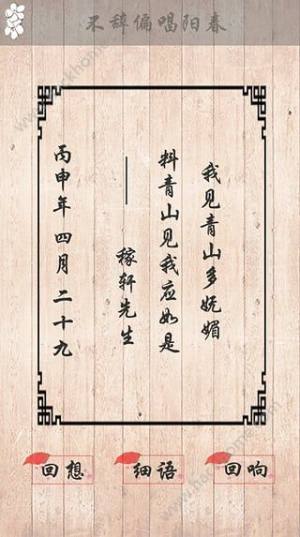 不辞偏唱阳春
我见青山多妩媚
料青山见我应如是
——稼轩先生
丙申年四月二十九
回想
细语
回响